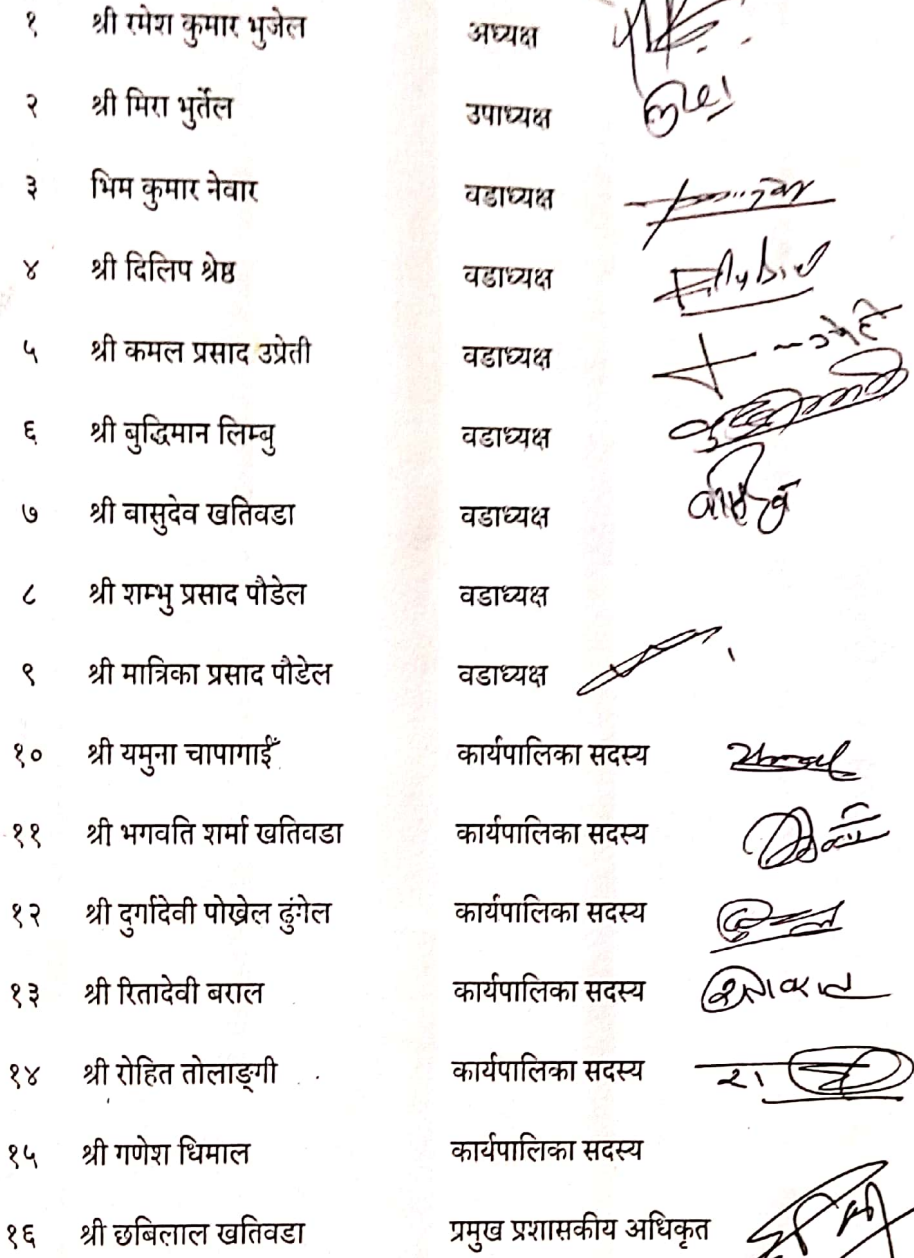 १ श्री रमेश कुमार भुजेल अध्यक्ष
२ श्री मिरा भुर्तेल उपाध्यक्ष
३ भिम कुमार नेवार वडाध्यक्ष
४ श्री दिलिप श्रेष्ठ वडाध्यक्ष
५ श्री कमल प्रसाद उप्रेती वडाध्यक्ष
६ श्री बुद्धिमान लिम्बु वडाध्यक्ष
७ श्री वासुदेव खतिवडा वडाध्यक्ष
८ श्री शम्भु प्रसाद पौडेल वडाध्यक्ष
९ श्री मात्रिका प्रसाद पौडेल वडाध्यक्ष
१० श्री यमुना चापागाईँ कार्यपालिका सदस्य
११ श्री भगवति शर्मा खतिवडा कार्यपालिका सदस्य
१२ श्री दुर्गादेवी पोख्रेल ढुंगेल कार्यपालिका सदस्य
१३ श्री रितादेवी बराल कार्यपालिका सदस्य
१४ श्री रोहित तोलाङ्गी कार्यपालिका सदस्य
१५ श्री गणेश धिमाल कार्यपालिका सदस्य
१६ श्री छबिलाल खतिवडा प्रमुख प्रशासकीय अधिकृत